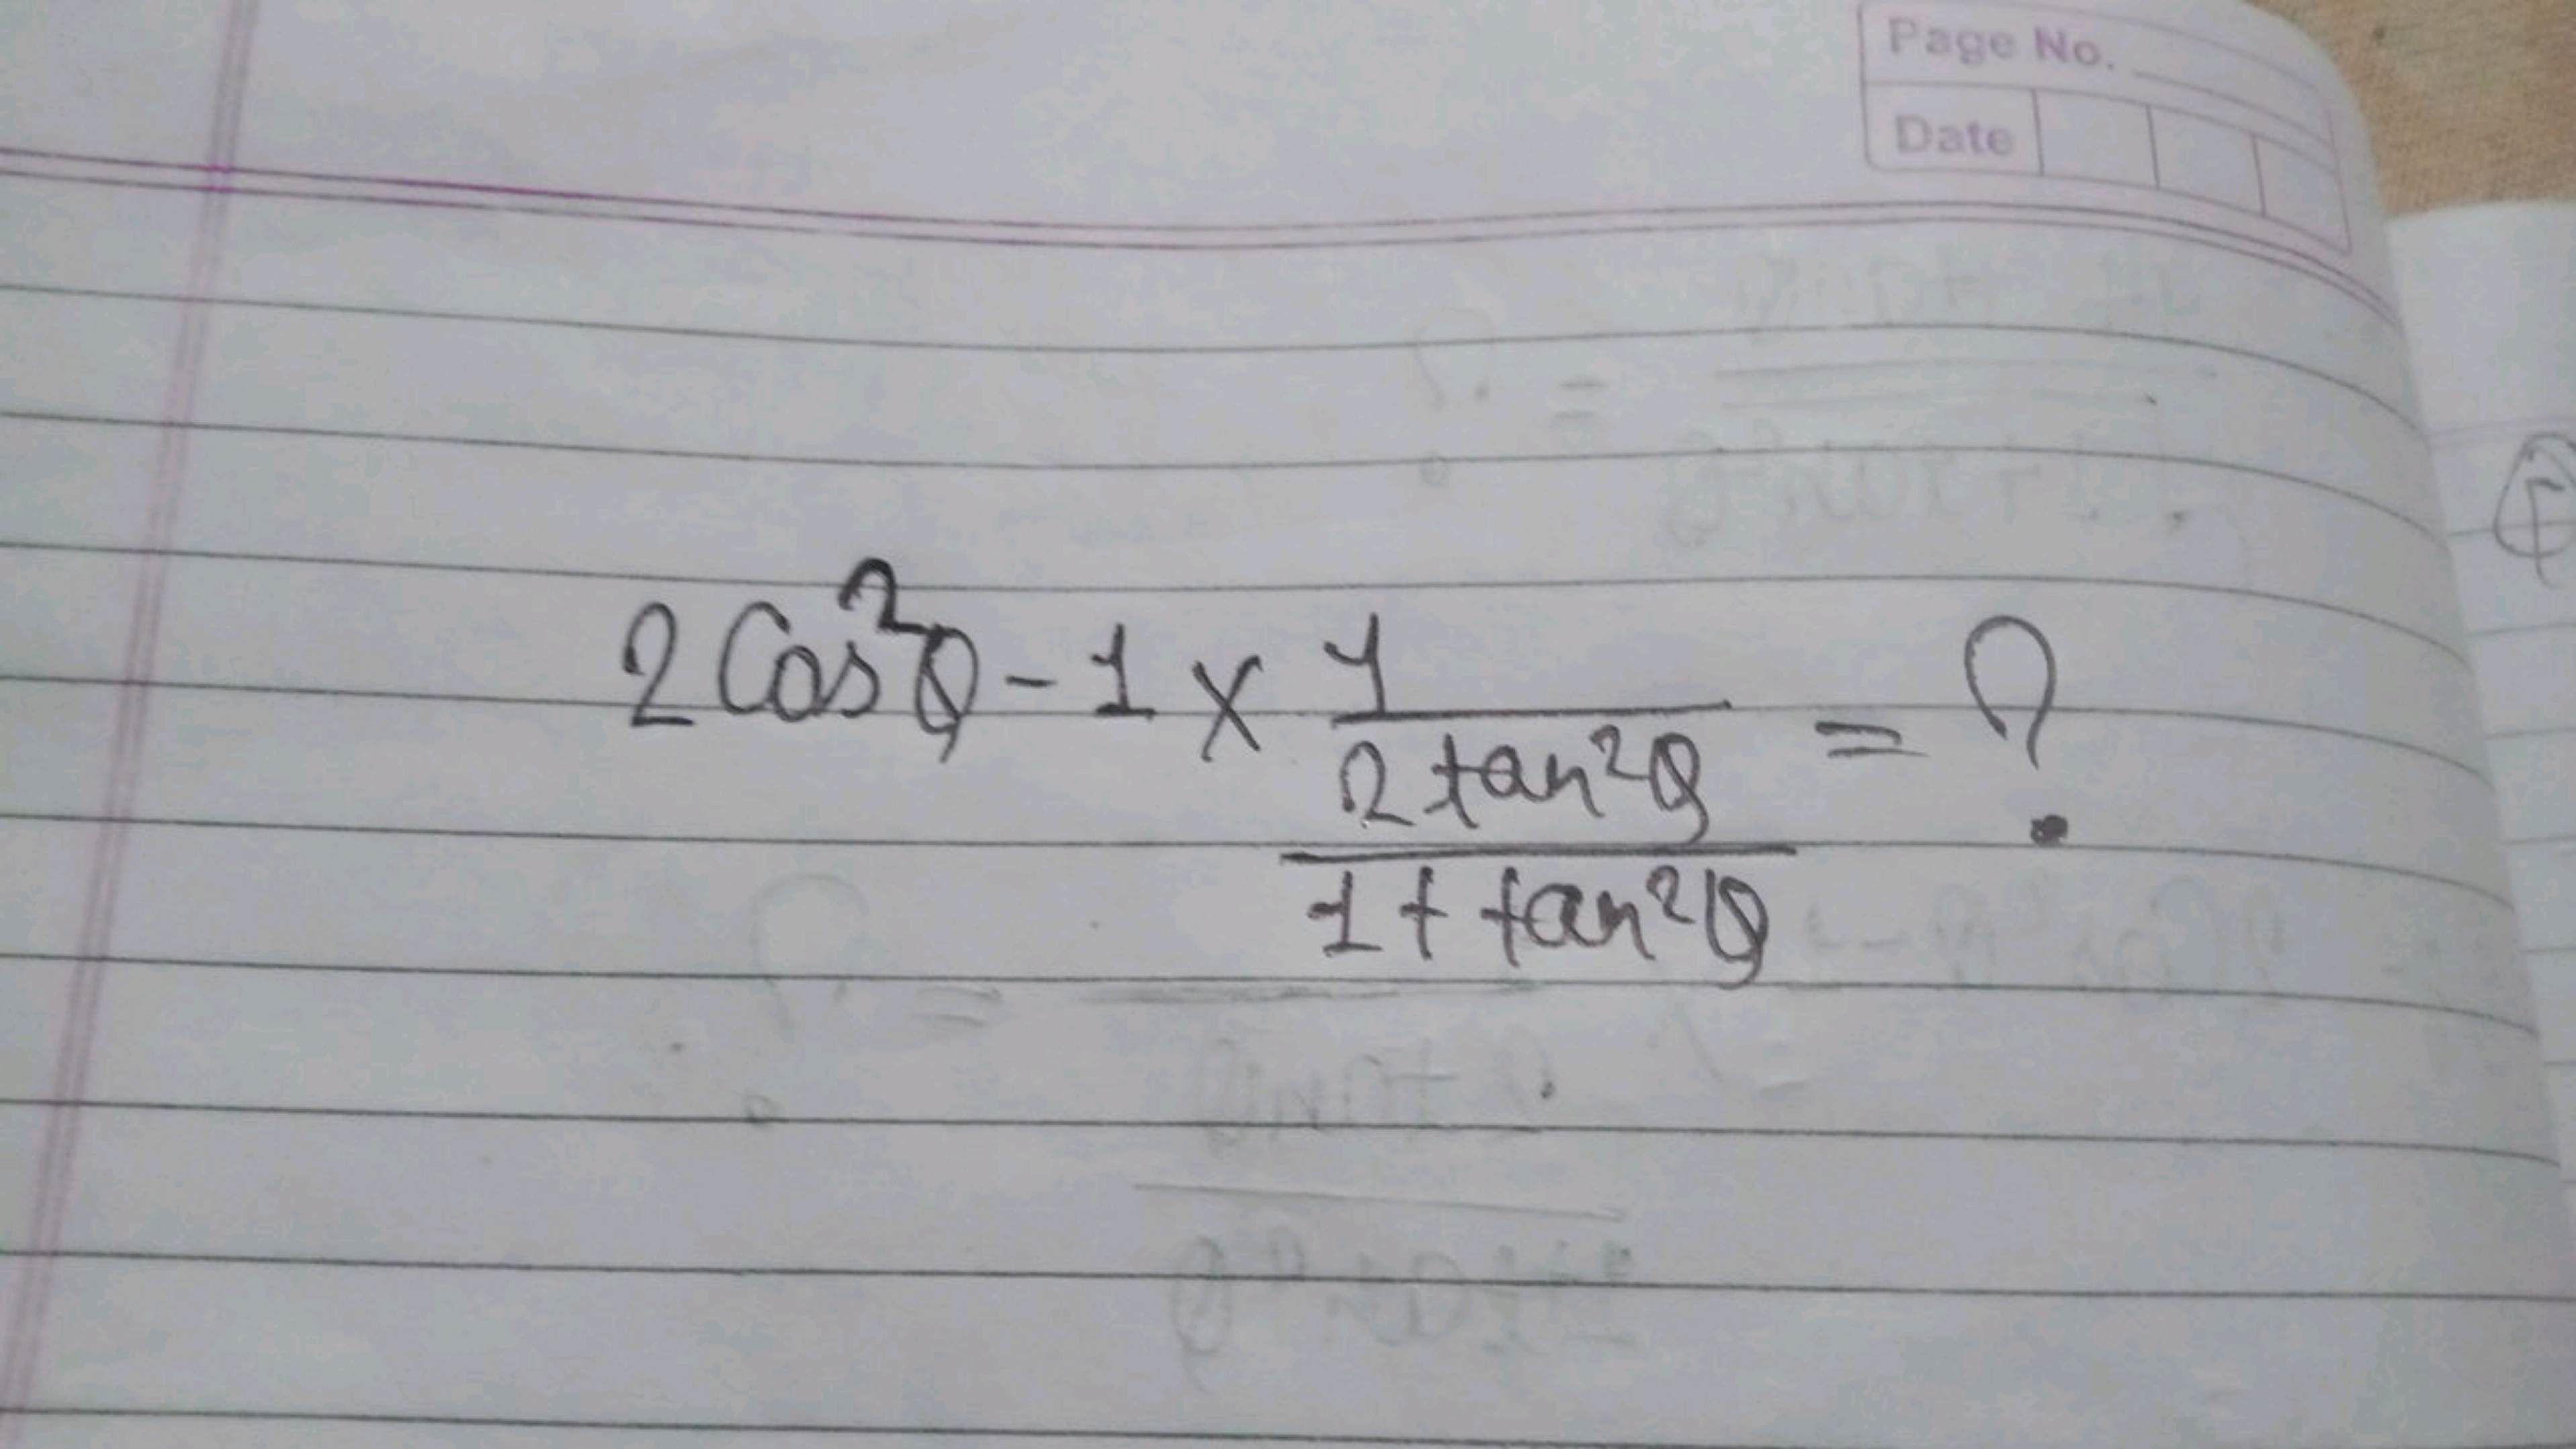 Page No.
Date
2 Cos²θ - 1 × 1 / (2 tan²θ / 1 + tan²θ) = ?